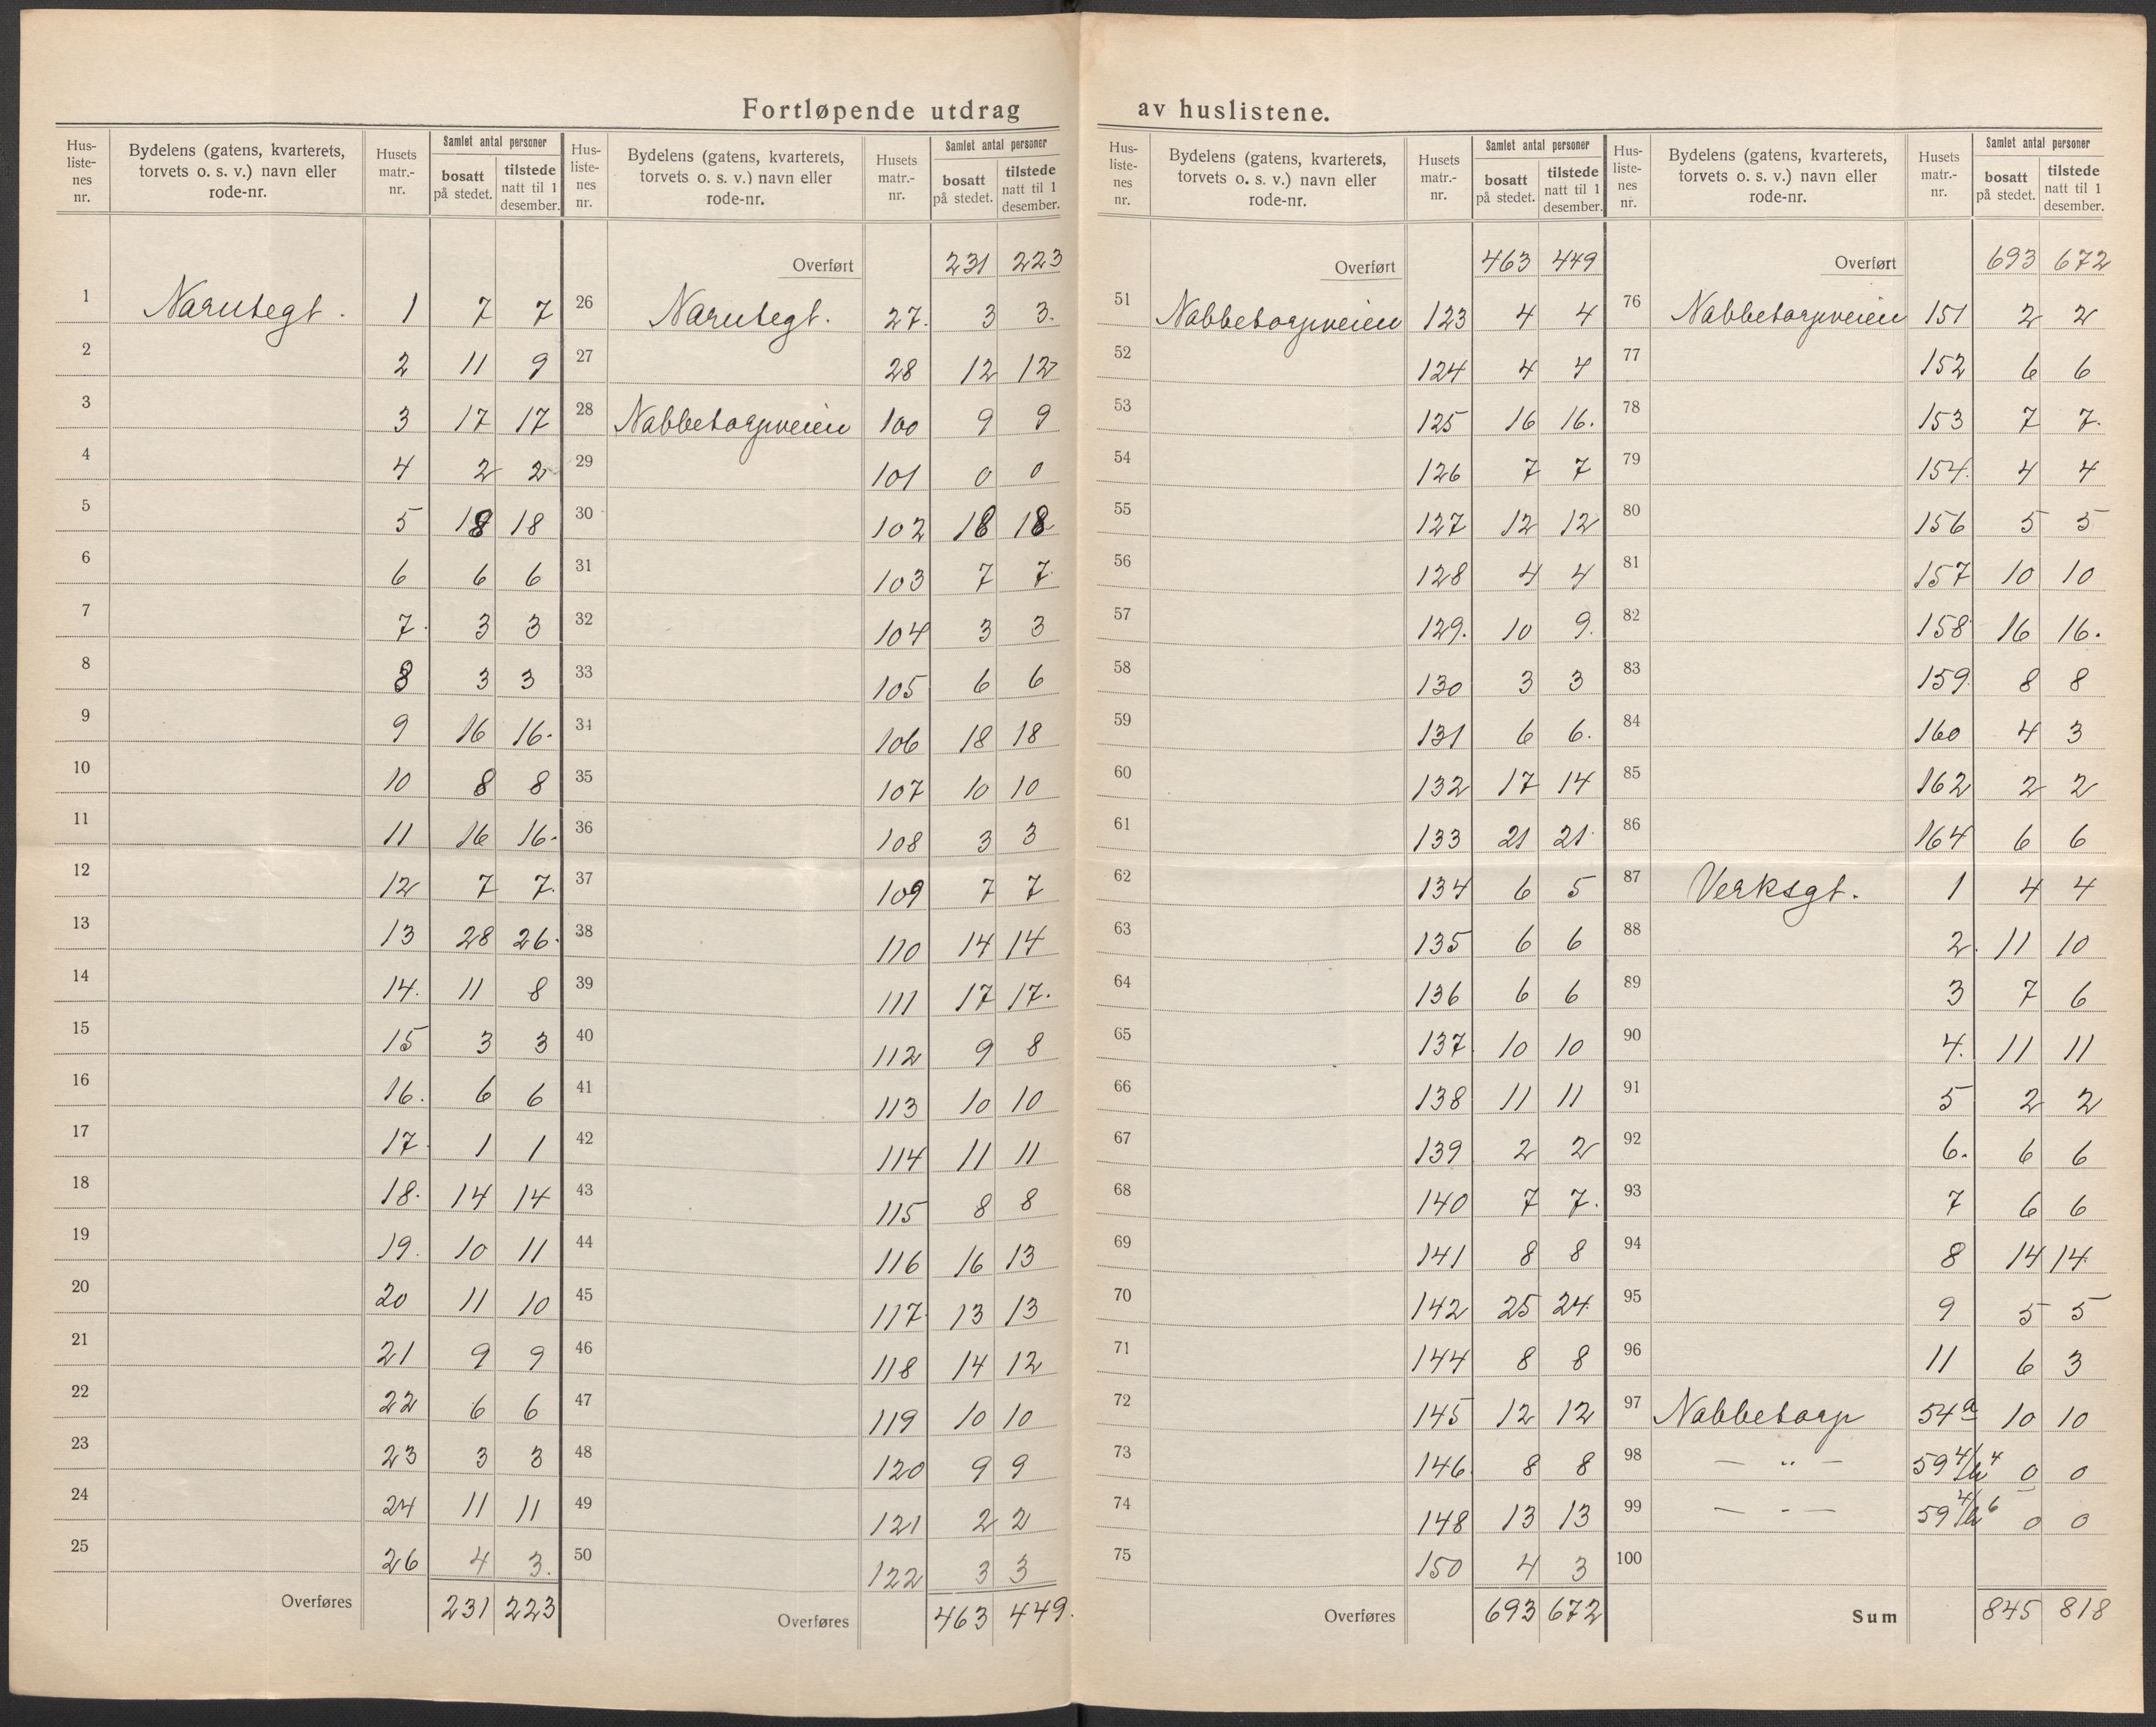 Fortløpende utdrag av huslistene.
Hus-listenes nr. | Bydelens (gatens, kvarterets, torvets o. s. v.) navn eller rode-nr. | Husets matr.-nr. | Samlet antal personer bosatt på stedet. | tilstede natt til 1 desember.
1 Narutegt. 1 7 7
2 2 11 9
3 3 17 17
4 4 2 2
5 5 18 18
6 6 6 6
7 7. 3 3
8 8 3 3
9 9 16 16.
10 10 8 8
11 11 16 16.
12 12 7 7.
13 13 28 26.
14 14. 11 8
15 15 3 3
16 16. 6 6
17 17. 1 1
18 18. 14 14
19 19. 10 11
20 20 11 10
21 21 9 9
22 22 6 6
23 23 3 3
24 24 11 11
25 26 4 3.
Overføres 231 223
Hus-listenes nr. | Bydelens (gatens, kvarterets, torvets o. s. v.) navn eller rode-nr. | Husets matr.-nr. | Samlet antal personer bosatt på stedet. | tilstede natt til 1 desember.
Overført 231 223
26 Narutegt. 27. 3 3.
27 28 12 12
28 Nabbetorpveien 100 9 9
29 101 0 0
30 102 18 18
31 103 7 7
32 104 3 3
33 105 6 6
34 106 18 18
35 107 10 10
36 108 3 3
37 109 7 7
38 110 14 14
39 111 17 17.
40 112 9 8
41 113 10 10
42 114 11 11
43 115 8 8
44 116 16 13
45 117 13 13
46 118 14 12
47 119 10 10
48 120 9 9
49 121 2 2
50 122 3 3
Overføres 463 449.
Hus-listenes nr. | Bydelens (gatens, kvarterets, torvets o. s. v.) navn eller rode-nr. | Husets matr.-nr. | Samlet antal personer bosatt på stedet. | tilstede natt til 1 desember.
Overført 463 449
51 Nabbetorpveien 123 4 4
52 124 4 4
53 125 16 16.
54 126 7 7
55 127 12 12
56 128 4 4
57 129. 10 9.
58 130 3 3
59 131 6 6.
60 132 17 14
61 133 21 21
62 134 6 5
63 135 6 6
64 136 6 6
65 137 10 10
66 138 11 11
67 139 2 2
68 140 7 7.
69 141 8 8
70 142 25 24
71 144 8 8
72 145 12 12
73 146 8 8
74 148 13 13
75 150 4 3
Overføres 693 672
Hus-listenes nr. | Bydelens (gatens, kvarterets, torvets o. s. v.) navn eller rode-nr. | Husets matr.-nr. | Samlet antal personer bosatt på stedet. | tilstede natt til 1 desember.
Overført 693 672
76 Nabbetorpveien 151 2 2
77 152 6 6
78 153 7 7.
79 154. 4 4
80 156 5 5
81 157 10 10
82 158 16 16.
83 159. 8 8
84 160 4 3
85 162 2 2
86 164 6 6
87 Verksgt. 1 4 4
88 2. 11 10
89 3 7 6
90 4. 11 11
91 5 2 2
92 6. 6 6
93 7 6 6
94 8 14 14
95 9 5 5
96 11 6 3
97 Nabbetorp 54a 10 10
98 — „ — 59 0 0
99 — - — 59 0 0
100
Sum 845 818